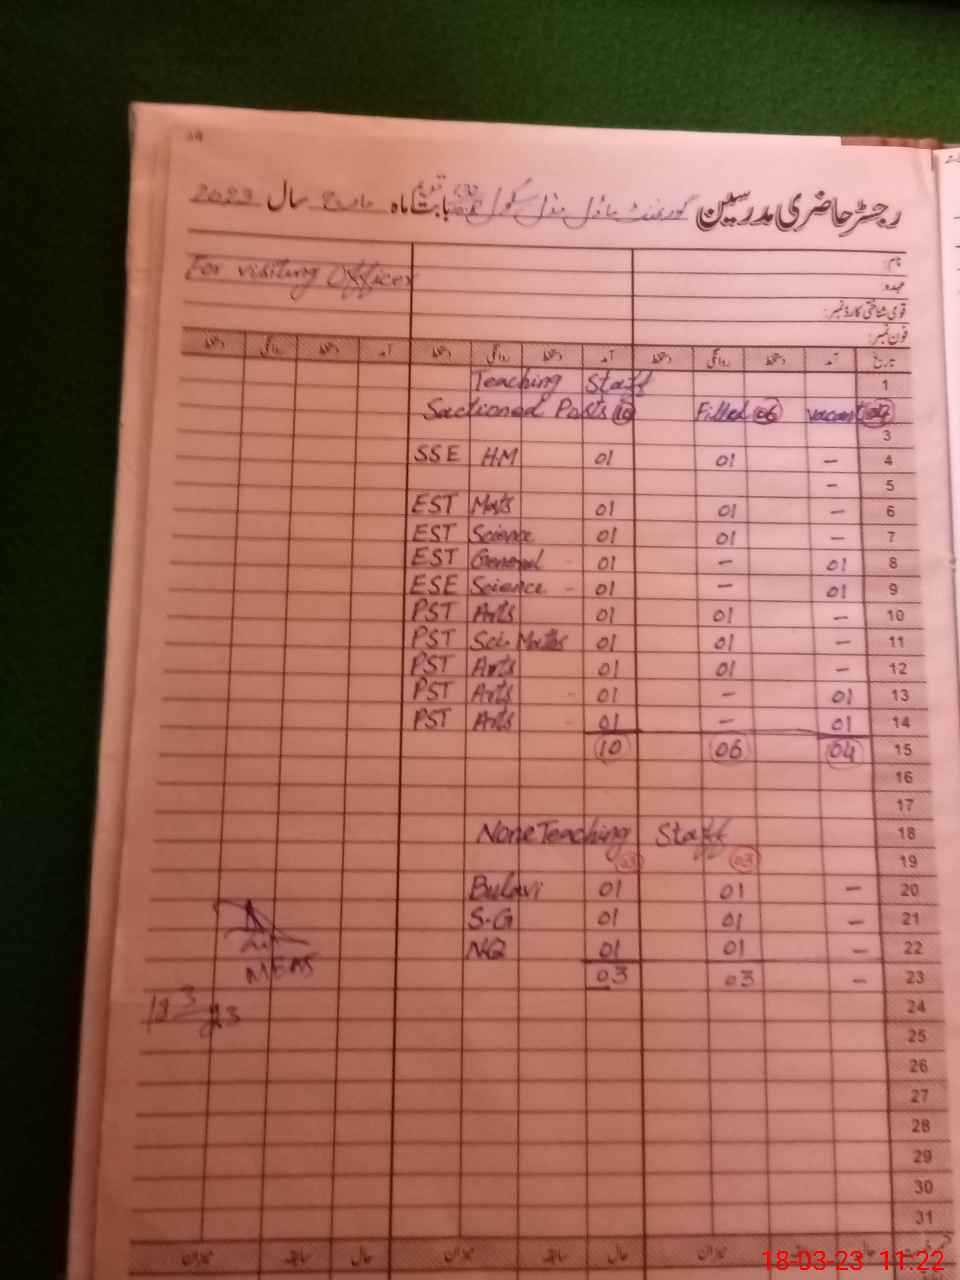 رجسٹر حاضری مدرسین گورنمنٹ ماڈل مڈل سکول بابت ماہ مارچ سال 2023
نام:
For visiting Officer
عہدہ:
قومی شناختی کارڈ نمبر:
فون نمبر:
تاریخ آمد دستخط روانگی دستخط آمد دستخط روانگی دستخط آمد دستخط روانگی دستخط
Teaching Staff 1
Sactioned Posts 10 Filled 06 vacant 04
3
SSE HM 01 01 – 4
– 5
EST Mats 01 01 – 6
EST Science 01 01 – 7
EST General - 01 – 01 8
ESE Science - 01 – 01 9
PST Arts 01 01 – 10
PST Sci-Maths 01 01 – 11
PST Arts 01 01 – 12
PST Arts - 01 – 01 13
PST Arts - 01 – 01 14
10 06 04 15
16
17
None Teaching Staff 18
03 03 19
01 01 – 20
S-G 01 01 – 21
NQ 01 01 – 22
03 03 – 23
24
18 3 23
25
26
27
28
29
30
31
حال سابقہ میزان حال سابقہ میزان
18-03-23 11:22